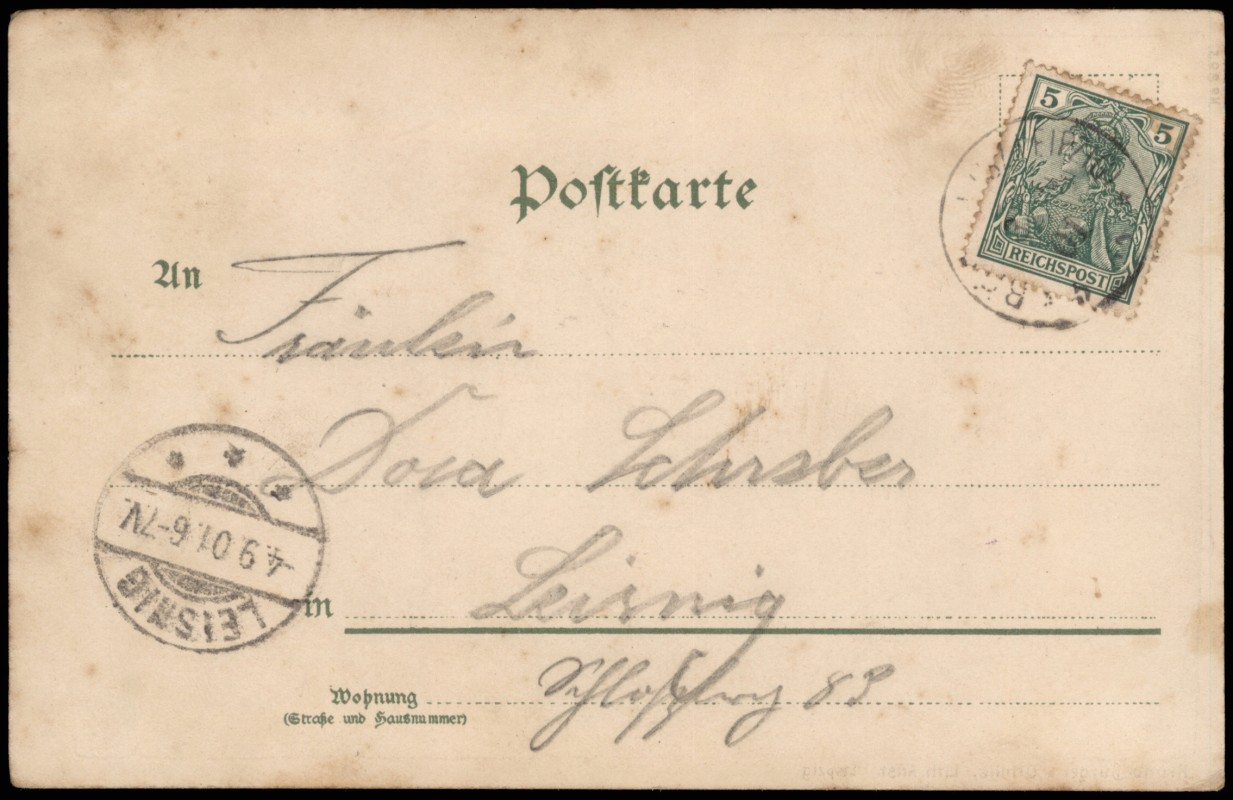 Postkarte
5 5
REICHSPOST
LEIPZIG
An Fräulein
Dora Schreiber
4.9.01.6-7N.
LEISNIG
in Leisnig
Wohnung Schloßberg 83
(Straße und Hausnummer)